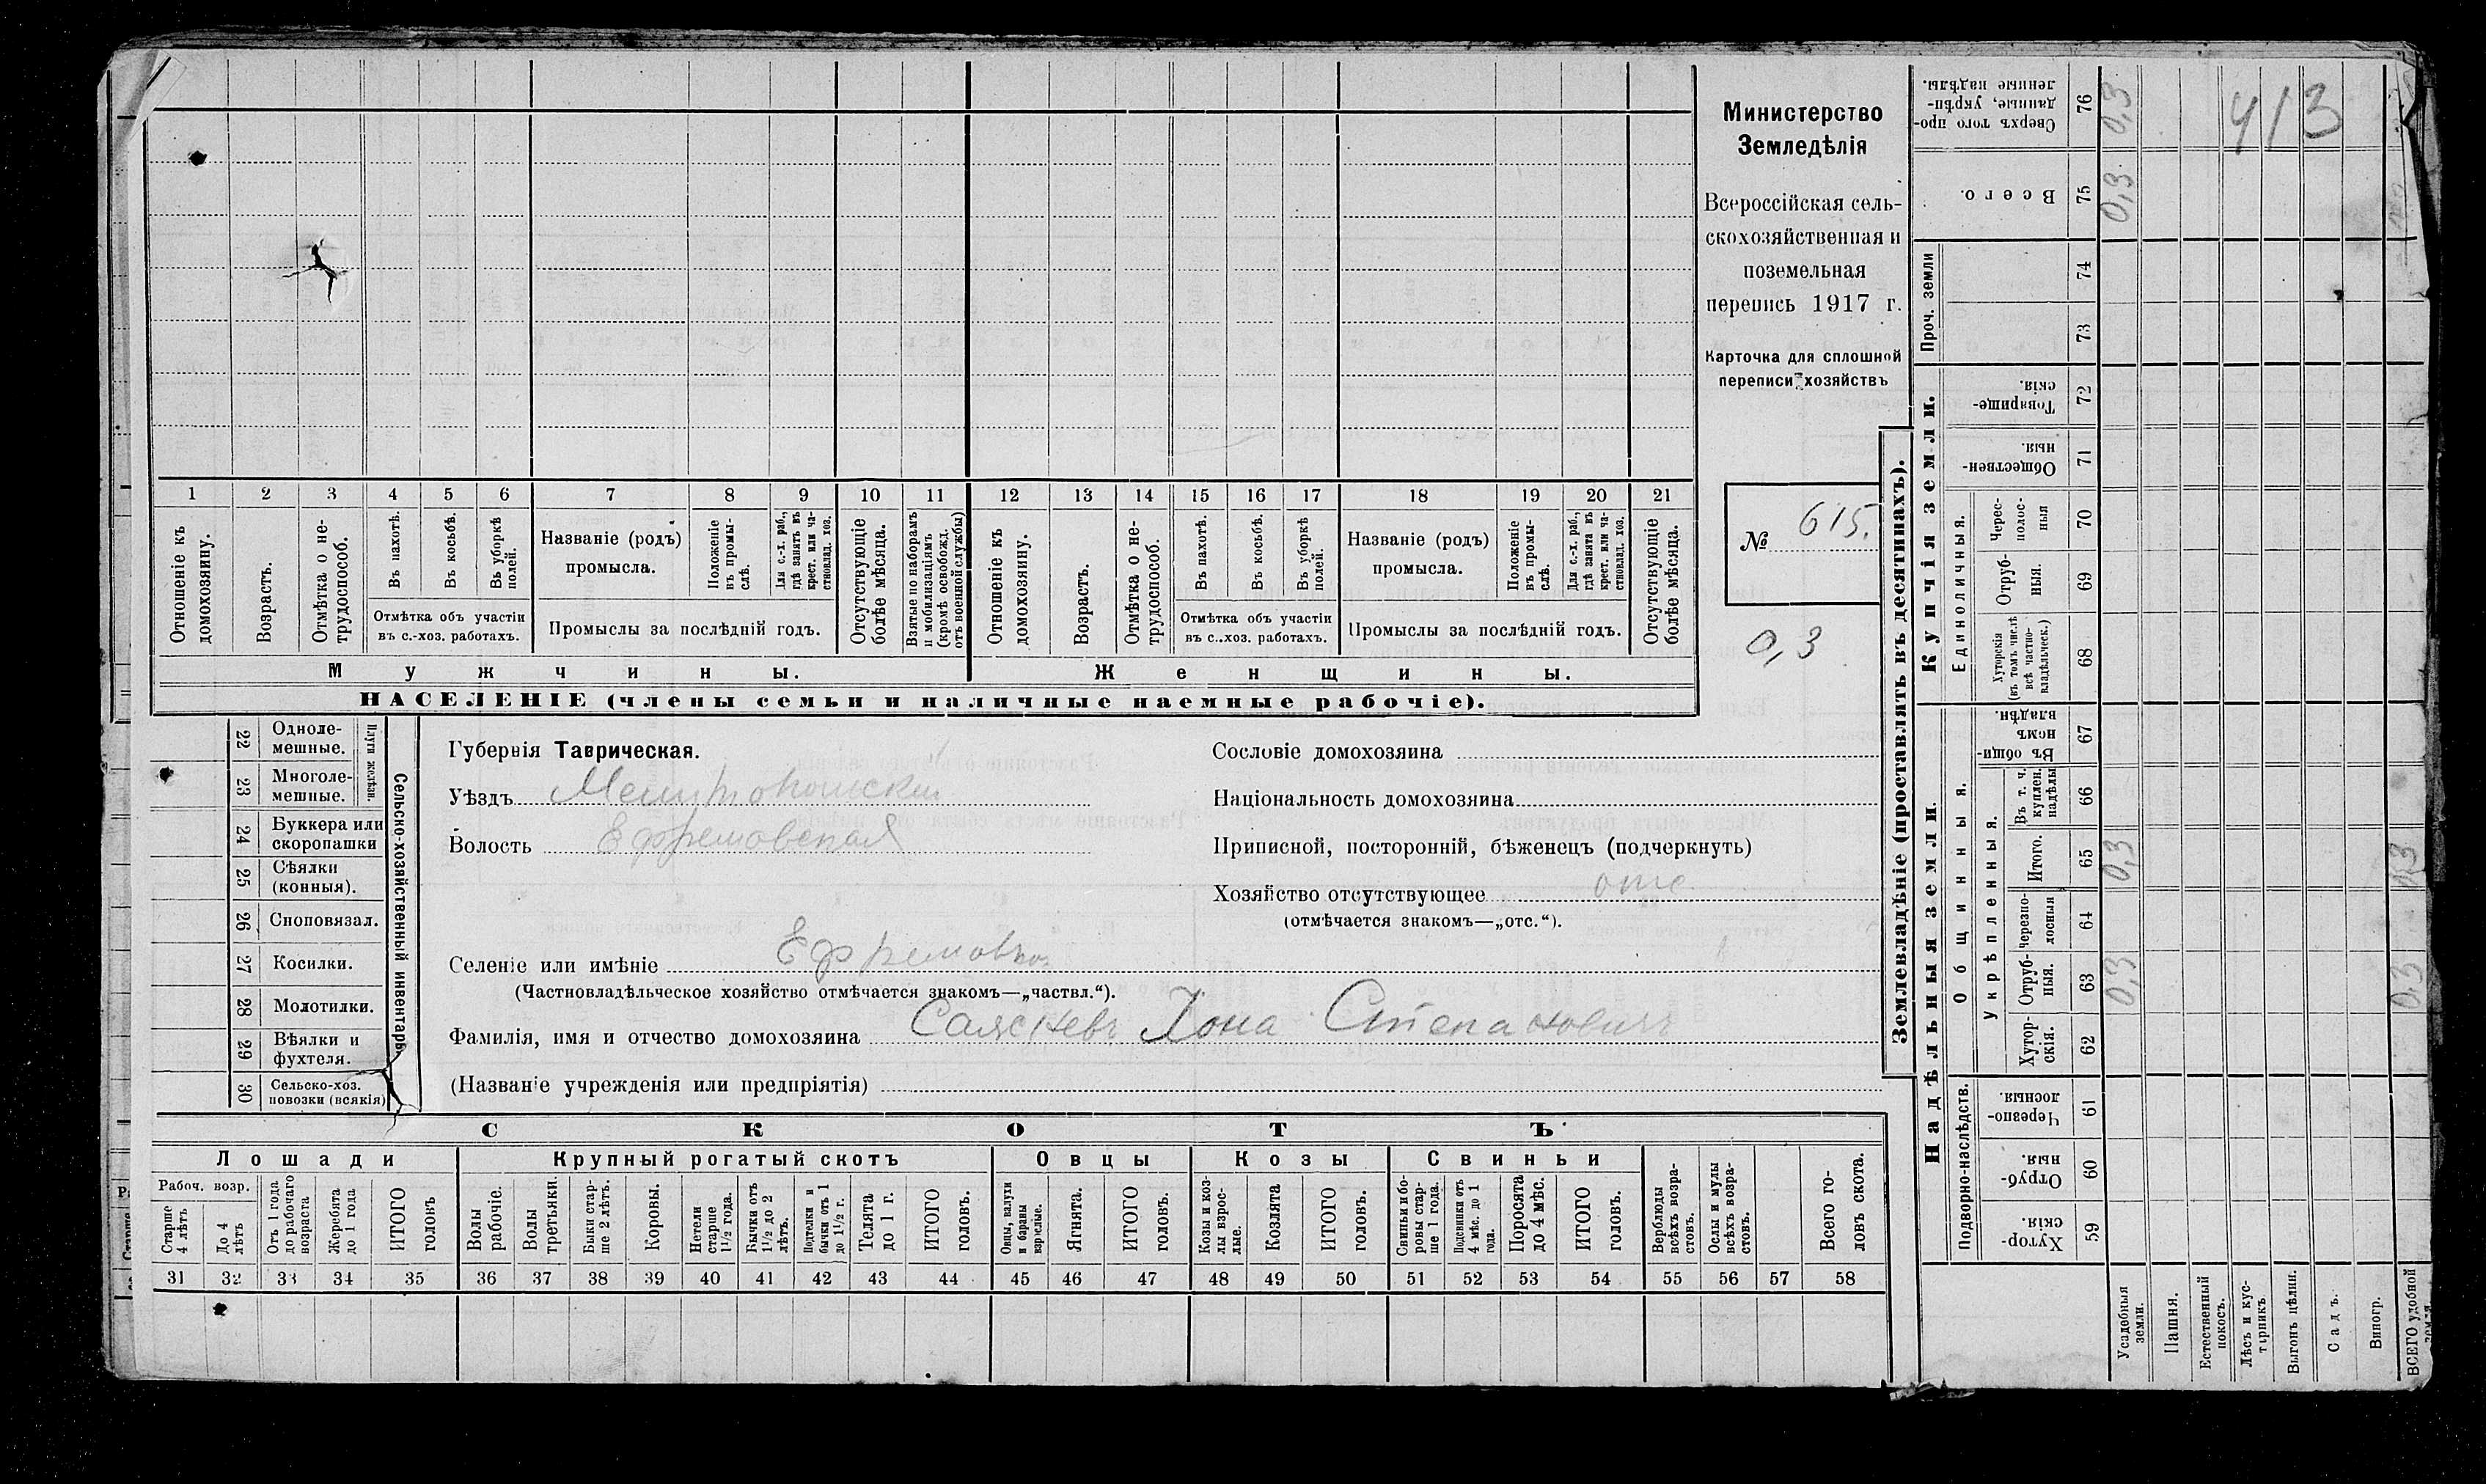 Министерство
Земледѣлія
Всероссійская сель-
скохозяйственная и
поземельная
перепись 1917 г.
Карточка для сплошной
переписи хозяйствъ
№ 615.
0,3
413
1 2 3 4 5 6 7 8 9 10 11 12 13 14 15 16 17 18 19 20 21
Отношеніе къ домохозяину.
Возрастъ.
Отмѣтка о не-трудоспособ.
Въ пахотѣ.
Въ косьбѣ.
Въ уборкѣ полей.
Отмѣтка объ участіи
въ с.-хоз. работахъ.
Названіе (родъ)
промысла.
Положеніе въ промы-слѣ.
Для с.-х. раб., гдѣ занятъ въ крест. или ча-стновлад. хоз.
Промыслы за послѣдній годъ.
Отсутствующіе болѣе мѣсяца.
Взятые по наборамъ и мобилизаціямъ (кромѣ освобожд. отъ военной службы)
Отношеніе къ домохозяину.
Возрастъ.
Отмѣтка о не-трудоспособ.
Въ пахотѣ.
Въ косьбѣ.
Въ уборкѣ полей.
Отмѣтка объ участіи
въ с.-хоз. работахъ.
Названіе (родъ)
промысла.
Положеніе въ промы-слѣ.
Для с.-х. раб., гдѣ занята въ крест. или ча-стновлад. хоз.
Промыслы за послѣдній годъ.
Отсутствующіе болѣе мѣсяца.
Мужчины. Женщины.
НАСЕЛЕНІЕ (члены семьи и наличные наемные рабочіе).
Сельско-хозяйственный инвентарь.
Плуги желѣзн.
22 Одноле-мешные.
23 Многоле-мешные.
24 Буккера или скоропашки
25 Сѣялки (конныя).
26 Сноповязал.
27 Косилки.
28 Молотилки.
29 Вѣялки и фухтеля.
30 Сельско-хоз. повозки (всякія)
Губернія Таврическая.
Уѣздъ Мелитопольскій
Волость Ефремовская
Селеніе или имѣніе Ефремовка
(Частновладѣльческое хозяйство отмѣчается знакомъ—„частвл.“).
Фамилія, имя и отчество домохозяина Степановичъ
(Названіе учрежденія или предпріятія)
Сословіе домохозяина
Національность домохозяина
Приписной, посторонній, бѣженецъ (подчеркнуть)
Хозяйство отсутствующее отс
(отмѣчается знакомъ—„отс.“).
СКОТЪ
Лошади Крупный рогатый скотъ Овцы Козы Свиньи
Рабоч. возр.
Старше 4 лѣтъ
До 4 лѣтъ
Отъ 1 года до рабочаго возраста
Жеребята до 1 года
ИТОГО головъ
Волы рабочіе.
Волы третьяки.
Быки стар-ше 2 лѣтъ.
Коровы.
Нетели старше 1½ года.
Бычки отъ 1½ до 2 лѣтъ.
Подтелки и бычки отъ 1 до 1½ г.
Телята до 1 г.
ИТОГО головъ.
Овцы, валухи и бараны взрослые.
Ягнята.
ИТОГО головъ.
Козы и коз-лы взрос-лые.
Козлята
ИТОГО головъ.
Свиньи и бо-ровы стар-ше 1 года.
Подсвинки отъ 4 мѣс. до 1 года.
Поросята до 4 мѣс.
ИТОГО головъ.
Верблюды всѣхъ возра-стовъ.
Ослы и мулы всѣхъ возра-стовъ.
Всего го-ловъ скота.
31 32 33 34 35 36 37 38 39 40 41 42 43 44 45 46 47 48 49 50 51 52 53 54 55 56 57 58
Землевладѣніе (проставлять въ десятинахъ).
Купчія земли.
Надѣльныя земли.
Сверхъ того про-данные, укрѣп-ленные надѣлы. 76 0,3
Всего. 75 0,3
Проч. земли 74 73
Товарище-скія. 72
Обществен-ныя. 71
Единоличныя.
Черес-полос-ныя 70
Отруб-ныя. 69
Хуторскія (въ томъ числѣ всѣ частно-владѣльческ.) 68
Общинныя.
Въ общин-номъ владѣн. 67
Укрѣпленныя.
Въ т. ч. куплен. надѣлы 66
Итого. 65 0,3 0,3
Черезпо-лосныя 64
Отруб-ныя. 63 0,3 0,3
Хутор-скія. 62
Подворно-наслѣдств.
Черезпо-лосныя. 61
Отруб-ныя. 60
Хутор-скія. 59
Усадебныя земли.
Пашня.
Естественный покосъ.
Лѣсъ и кус-тарникъ.
Выгонъ цѣлин.
Садъ.
Виногр.
ВСЕГО удобной земли.